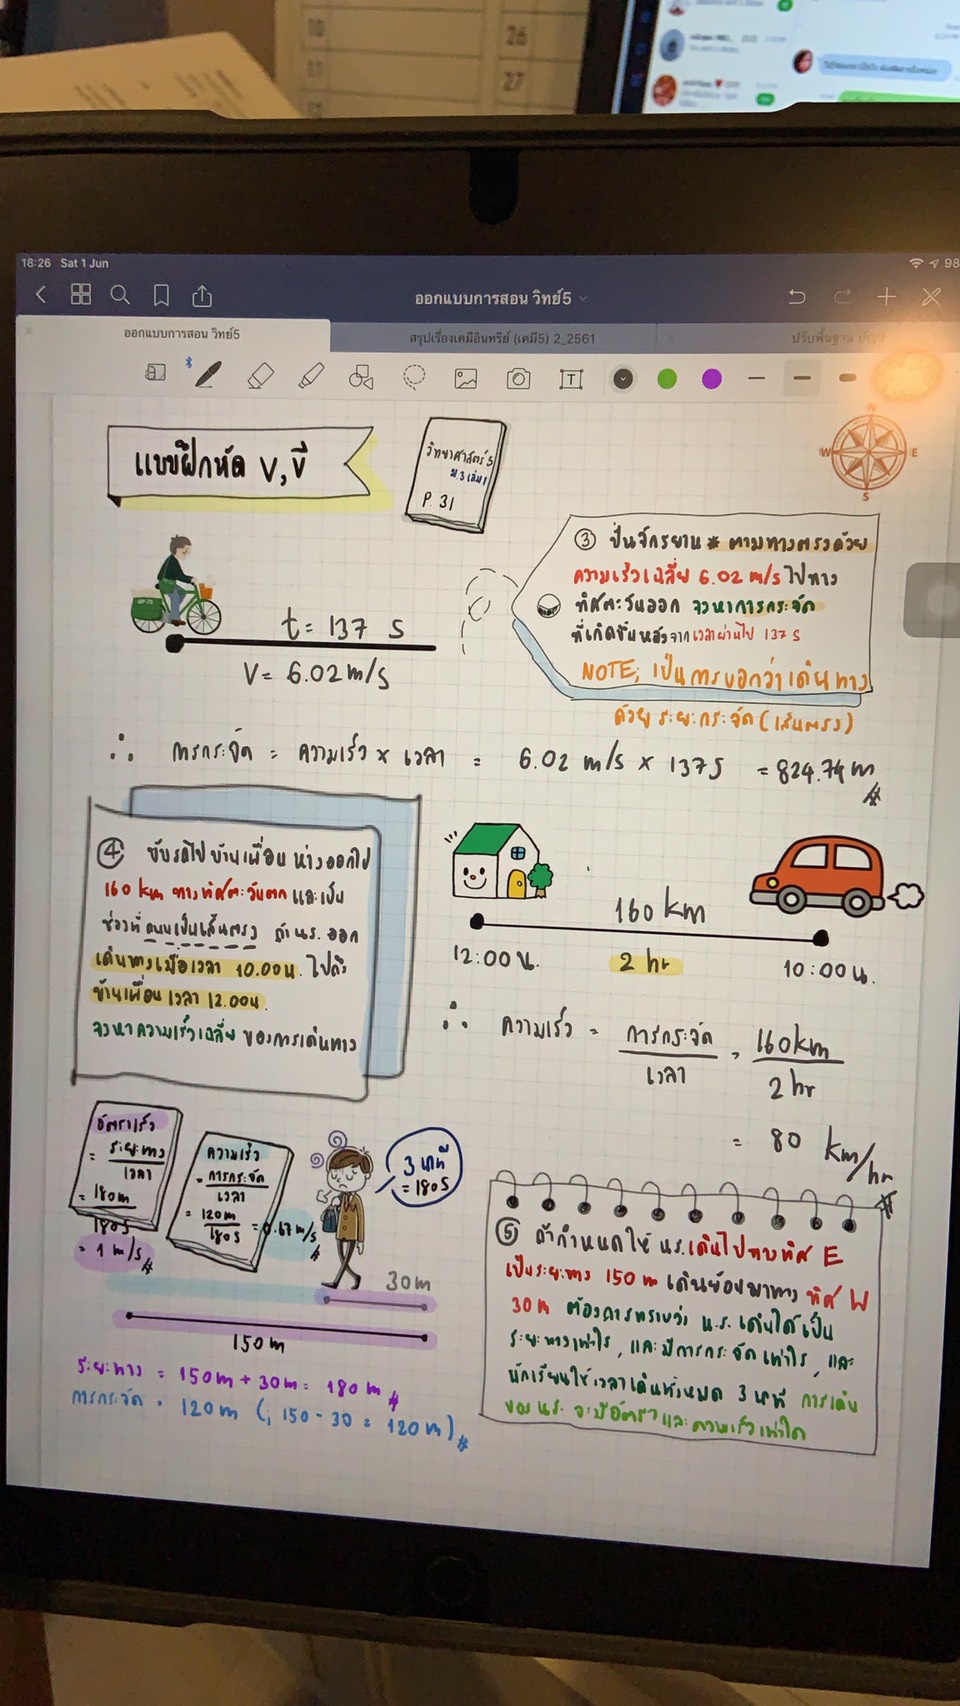 18:26 Sat 1 Jun
98
ออกแบบการสอน วิทย์5
ออกแบบการสอน วิทย์5
สรุปเรื่องเคมีอินทรีย์ (เคมี5) 2_2561
ปรับพื้นฐาน
26
27
แบบฝึกหัด v, v̄
วิทยาศาสตร์ 5
ม.3 เล่ม 1
P. 31
N
W E
S
③ ปั่นจักรยาน * ตามทางตรงด้วย
ความเร็วเฉลี่ย 6.02 m/s ไปทาง
ทิศตะวันออก จงหาการกระจัด
ที่เกิดขึ้นหลังจากเวลาผ่านไป 137 s
NOTE; เป็นการบอกว่าเดินทาง
ด้วยระยะกระจัด (เส้นตรง)
t = 137 s
V = 6.02 m/s
∴ การกระจัด = ความเร็ว x เวลา = 6.02 m/s x 137 s = 824.74 m #
④ ขับรถไปบ้านเพื่อน ห่างออกไป
160 km ทางทิศตะวันตก และเป็น
ช่วงที่ถนนเป็นเส้นตรง ถ้า นร. ออก
เดินทางเมื่อเวลา 10.00น. ไปถึง
บ้านเพื่อน เวลา 12.00น.
จงหาความเร็วเฉลี่ย ของการเดินทาง
160 km
12:00 น. 2 hr 10:00 น.
∴ ความเร็ว = การกระจัด / เวลา = 160 km / 2 hr
= 80 km/hr #
อัตราเร็ว
= ระยะทาง
เวลา
= 180m
180s
= 1 m/s #
ความเร็ว
= การกระจัด
เวลา
= 120m
180s = 0.67 m/s #
3 นาที
= 180 s
30 m
150 m
ระยะทาง = 150 m + 30 m = 180 m #
การกระจัด = 120 m (; 150 - 30 = 120 m) #
⑤ ถ้ากำหนดให้ นร. เดินไปทางทิศ E
เป็นระยะทาง 150 m เดินย้อนมาทาง ทิศ W
30 m ต้องการทราบว่า น.ร. เดินได้เป็น
ระยะทางเท่าไร, และมีการกระจัดเท่าไร, และ
นักเรียนใช้เวลาเดินทั้งหมด 3 นาที การเดิน
ของ นร. จะมีอัตราเร็ว และความเร็วเท่าใด